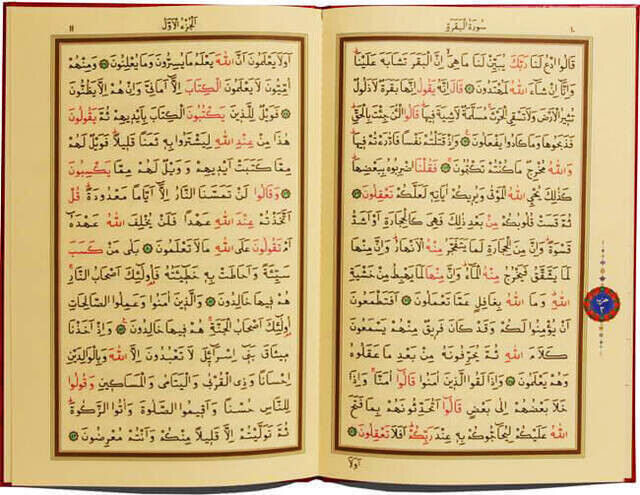 ١٠
سُورَةُ الْبَقَرَةِ
قَالُوا ادْعُ لَنَا رَبَّكَ يُبَيِّنْ لَنَا مَا هِيَ اِنَّ الْبَقَرَ تَشَابَهَ عَلَيْنَا
وَاِنَّٓا اِنْ شَٓاءَ اللّٰهُ لَمُهْتَدُونَ قَالَ اِنَّهُ يَقُولُ اِنَّهَا بَقَرَةٌ لَا ذَلُولٌ
تُثِيرُ الْاَرْضَ وَلَا تَسْقِي الْحَرْثَ مُسَلَّمَةٌ لَا شِيَةَ فِيهَا قَالُوا الْـٰٔنَ جِئْتَ بِالْحَقِّ
فَذَبَحُوهَا وَمَا كَادُوا يَفْعَلُونَ وَاِذْ قَتَلْتُمْ نَفْسًا فَادّٰرَءْتُمْ فِيهَا
وَاللّٰهُ مُخْرِجٌ مَا كُنْتُمْ تَكْتُمُونَ فَقُلْنَا اضْرِبُوهُ بِبَعْضِهَا
كَذٰلِكَ يُحْيِ اللّٰهُ الْمَوْتٰى وَيُرِيكُمْ اٰيَاتِهِ لَعَلَّكُمْ تَعْقِلُونَ
ثُمَّ قَسَتْ قُلُوبُكُمْ مِنْ بَعْدِ ذٰلِكَ فَهِيَ كَالْحِجَارَةِ اَوْ اَشَدُّ
قَسْوَةً وَاِنَّ مِنَ الْحِجَارَةِ لَمَا يَتَفَجَّرُ مِنْهُ الْاَنْهَارُ وَاِنَّ مِنْهَا
لَمَا يَشَّقَّقُ فَيَخْرُجُ مِنْهُ الْمَٓاءُ وَاِنَّ مِنْهَا لَمَا يَهْبِطُ مِنْ خَشْيَةِ
اللّٰهِ وَمَا اللّٰهُ بِغَافِلٍ عَمَّا تَعْمَلُونَ اَفَتَطْمَعُونَ
اَنْ يُؤْمِنُوا لَكُمْ وَقَدْ كَانَ فَرِيقٌ مِنْهُمْ يَسْمَعُونَ
كَلَامَ اللّٰهِ ثُمَّ يُحَرِّفُونَهُ مِنْ بَعْدِ مَا عَقَلُوهُ
وَهُمْ يَعْلَمُونَ وَاِذَا لَقُوا الَّذِينَ اٰمَنُوا قَالُٓوا اٰمَنَّا وَاِذَا
خَلَا بَعْضُهُمْ اِلٰى بَعْضٍ قَالُٓوا اَتُحَدِّثُونَهُمْ بِمَا فَتَحَ
اللّٰهُ عَلَيْكُمْ لِيُحَٓاجُّوكُمْ بِهِ عِنْدَ رَبِّكُمْ اَفَلَا تَعْقِلُونَ
اَوَلَا
اَلْجُزْءُ الْاَوَّلُ
١١
اَوَلَا يَعْلَمُونَ اَنَّ اللّٰهَ يَعْلَمُ مَا يُسِرُّونَ وَمَا يُعْلِنُونَ وَمِنْهُمْ
اُمِّيُّونَ لَا يَعْلَمُونَ الْكِتَابَ اِلَّٓا اَمَانِيَّ وَاِنْ هُمْ اِلَّا يَظُنُّونَ
فَوَيْلٌ لِلَّذِينَ يَكْتُبُونَ الْكِتَابَ بِاَيْدِيهِمْ ثُمَّ يَقُولُونَ
هٰذَا مِنْ عِنْدِ اللّٰهِ لِيَشْتَرُوا بِهِ ثَمَنًا قَلِيلًا فَوَيْلٌ لَهُمْ
مِمَّا كَتَبَتْ اَيْدِيهِمْ وَوَيْلٌ لَهُمْ مِمَّا يَكْسِبُونَ
وَقَالُوا لَنْ تَمَسَّنَا النَّارُ اِلَّٓا اَيَّامًا مَعْدُودَةً قُلْ
اَتَّخَذْتُمْ عِنْدَ اللّٰهِ عَهْدًا فَلَنْ يُخْلِفَ اللّٰهُ عَهْدَهُٓ
اَمْ تَقُولُونَ عَلَى اللّٰهِ مَا لَا تَعْلَمُونَ بَلٰى مَنْ كَسَبَ
سَيِّئَةً وَاَحَاطَتْ بِهِ خَطِٓيـَٔتُهُ فَاُولٰٓئِكَ اَصْحَابُ النَّارِ
هُمْ فِيهَا خَالِدُونَ وَالَّذِينَ اٰمَنُوا وَعَمِلُوا الصَّالِحَاتِ
اُولٰٓئِكَ اَصْحَابُ الْجَنَّةِ هُمْ فِيهَا خَالِدُونَ وَاِذْ اَخَذْنَا
مِيثَاقَ بَنِٓي اِسْرَٓائِلَ لَا تَعْبُدُونَ اِلَّا اللّٰهَ وَبِالْوَالِدَيْنِ
اِحْسَانًا وَذِي الْقُرْبٰى وَالْيَتَامٰى وَالْمَسَاكِينِ وَقُولُوا
لِلنَّاسِ حُسْنًا وَاَقِيمُوا الصَّلٰوةَ وَاٰتُوا الزَّكٰوةَ
ثُمَّ تَوَلَّيْتُمْ اِلَّا قَلِيلًا مِنْكُمْ وَاَنْتُمْ مُعْرِضُونَ